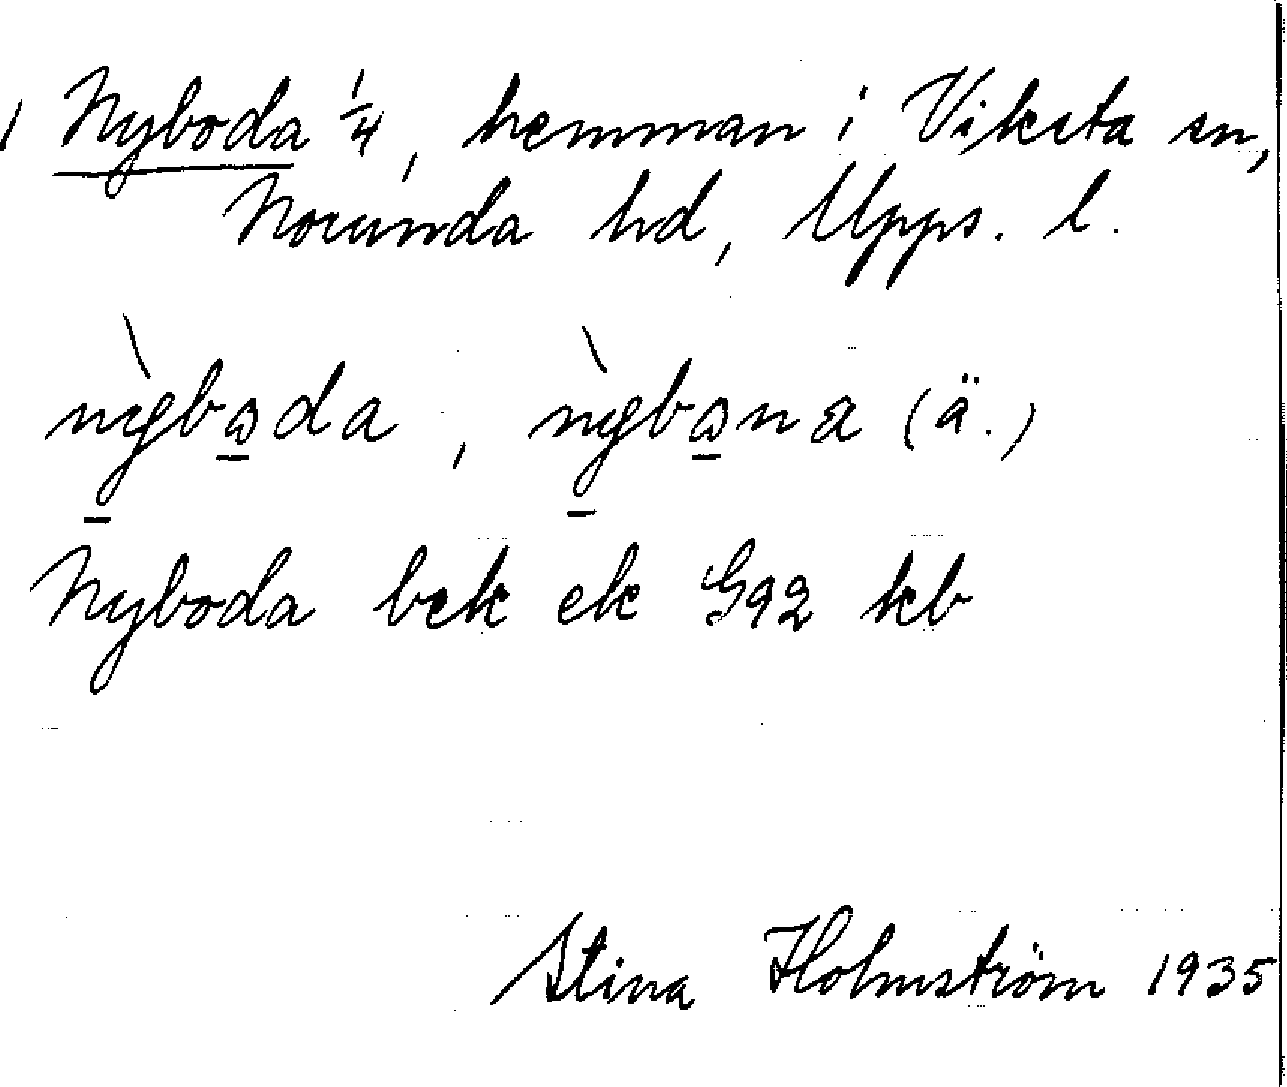 1 Nyboda 1/4, hemman i Viksta sn,
Norunda hd, Upps. l.
nỳboda, nỳbona (ä.)
Nyboda bek ek G92 kb
Stina Holmström 1935